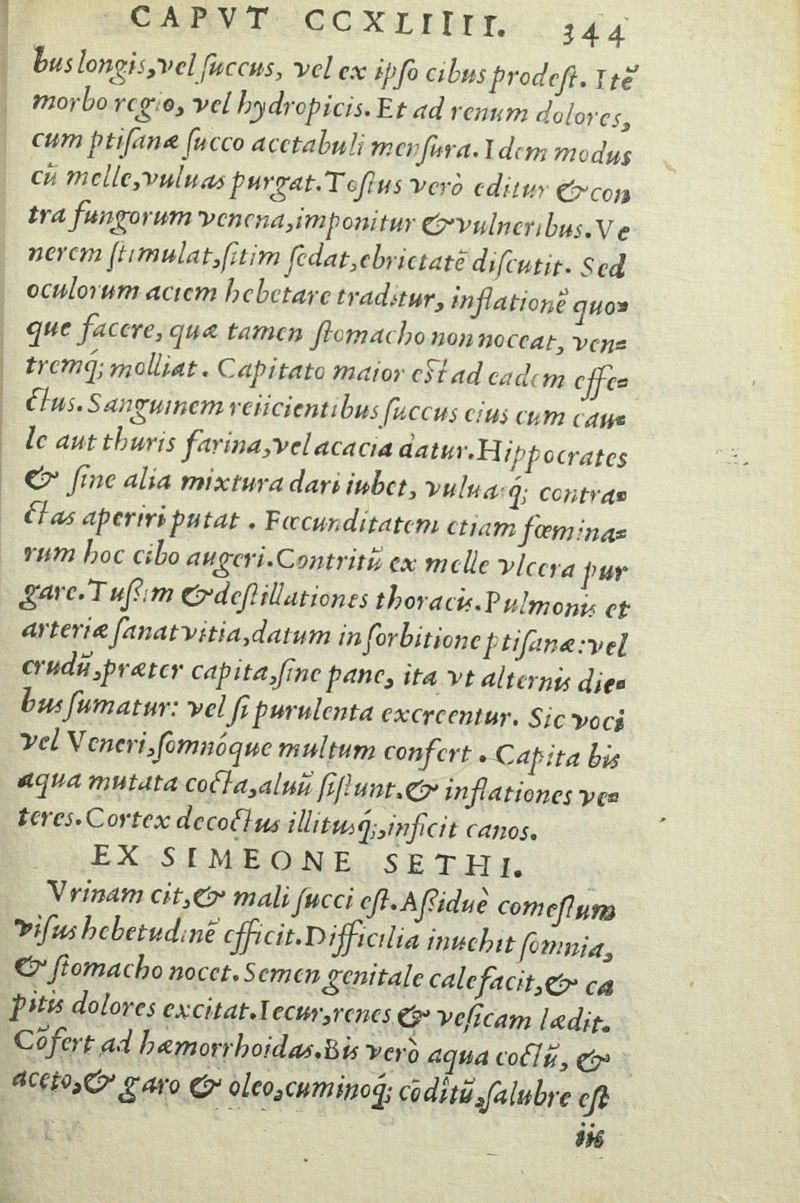 CAPVT CCXLIIII. 344
bus longis, vel succus, vel ex ipso cibus prodest. Itẽ
morbo regio, vel hydropicis. Et ad renum dolores,
cum ptisanæ succo acetabuli mensura. Idem modus
cũ melle, vuluas purgat. Tostus verò editur & con
tra fungorum venena, imponitur & vulneribus. Ve
nerem stimulat, sitim sedat, ebrietatẽ discutit. Sed
oculorum aciem hebetare traditur, inflationẽ quo=
que facere, quæ tamen stomacho non noceat, ven=
tremq́; molliat. Capitato maior est ad eadem effe=
ctus. Sanguinem reiicientibus succus eius cum cau=
le aut thuris farina, vel acacia datur. Hippocrates
& sine alia mixtura dari iubet, vuluasq́; contra=
ctas aperiri putat. Fœcunditatem etiam fœmina=
rum hoc cibo augeri. Contritũ ex melle vlcera pur
gare. Tussim & destillationes thoracis. Pulmonis et
arteriæ sanat vitia, datum in sorbitione ptisanæ: vel
crudũ, præter capita, sine pane, ita vt alternis die=
bus sumatur: vel si purulenta excreentur. Sic voci
vel Veneri, somnóque multum confert. Capita bis
aqua mutata cocta, aluũ sistunt, & inflationes ve=
teres. Cortex decoctus illitusq́;, inficit canos.
EX SIMEONE SETHI.
Vrinam cit, & mali succi est. Aßiduè comestum
visus hebetudinẽ efficit. Difficilia inuehit somnia,
& stomacho nocet. Semen genitale calefacit, & ca
pitis dolores excitat. Iecur, renes & vesicam lædit.
Cõfert ad hæmorrhoidas. Bis verò aqua coctũ, &
aceto, & garo & oleo, cuminoq́; cõditũ, salubre est
iis